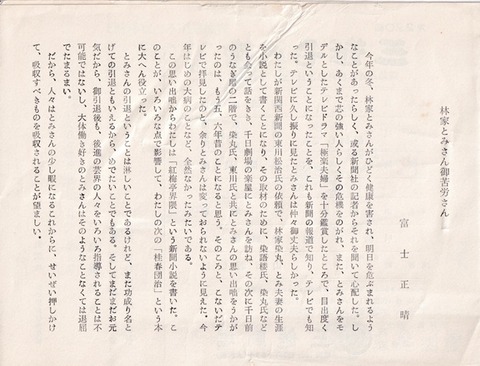 林家とみさん御苦労さん
富士正晴
今年の冬、林家とみさんがひどく健康を害され、明日を危まれるよう
なことがあったらしく、或る新聞社の記者からそれを聞いて心配した。し
かし、あくまで芯の強い人らしくその危機をのがれ、また、とみさんをモ
デルとしたテレビドラマ「極楽夫婦」を十分鑑賞したところで、目出度く
引退ということになったことを、これも新聞の報道で知り、テレビでも知
った。テレビに久し振りに見たとみさんは仲々御丈夫らしかった。
わたしが新関西新聞の東川松治氏の依頼で、林家染丸、とみ夫妻の生涯
を小説として書くことになり、その取材のために、染語楼氏、染丸氏など
とも会って話をきき、千日劇場の楽屋にとみさんを訪ね、その次に千日前
のうなぎ屋の二階で、染丸氏、東川氏と共にとみさんの思い出咄をうかが
ったのは、もう五、六年昔のことになると思う。そのころと、こないだテ
レビで拝見したのと、余りとみさんは変っておられないように見えた。今
年はじめの大病のことなど、全然なかったみたいである。
この思い出咄からわたしは「紅梅亭界隈」という新聞小説を書いた。こ
のことが、いろいろな点で影響して、わたしの次の「桂春団治」という本
に大へん役立った。
とみさんの引退ということは淋しいことであるけれど、また功成り名と
げての引退ともいえるから、めでたいことでもある。そしてまだまだお元
気だから、御引退後も、後進の芸界の人々をいろいろ指導されることは不
可能ではないし、大体働き好きのとみさんはそのようなことなくては退屈
でたまるまい。
だから、人々はとみさんの少し暇になるこれからに、せいぜい押しかけ
て、吸収すべきものを吸収されることが望ましい。